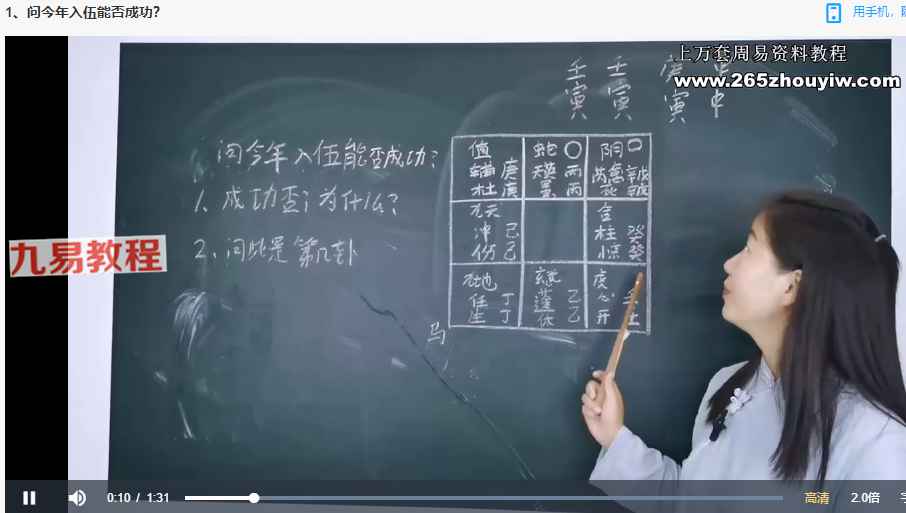 1、问今年入伍能否成功?
用手机,
上万套周易资料教程
www.265zhouyiw.com
壬 壬 庚
寅 寅 寅 申
问今年入伍能否成功?
1、成功否?为什么?
2、问此是第几卦
九易教程
值
辅 庚
杜 庚
蛇 〇
英 丙
景 丙
阴
九天
冲 己
伤 己
合
柱 癸
惊 癸
九地
任 丁
生 丁
蓬 乙
休 乙
开
马
0:10 / 1:31
高清
2.0倍
字